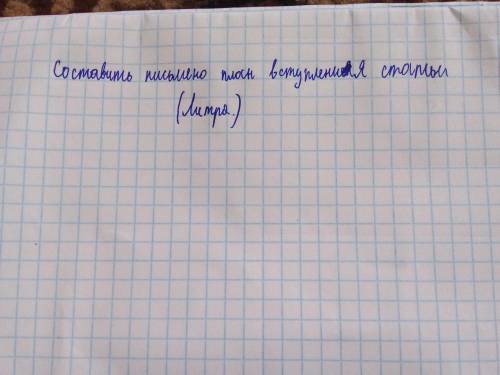 Составить письмено план вступления статьи
(Литра.)